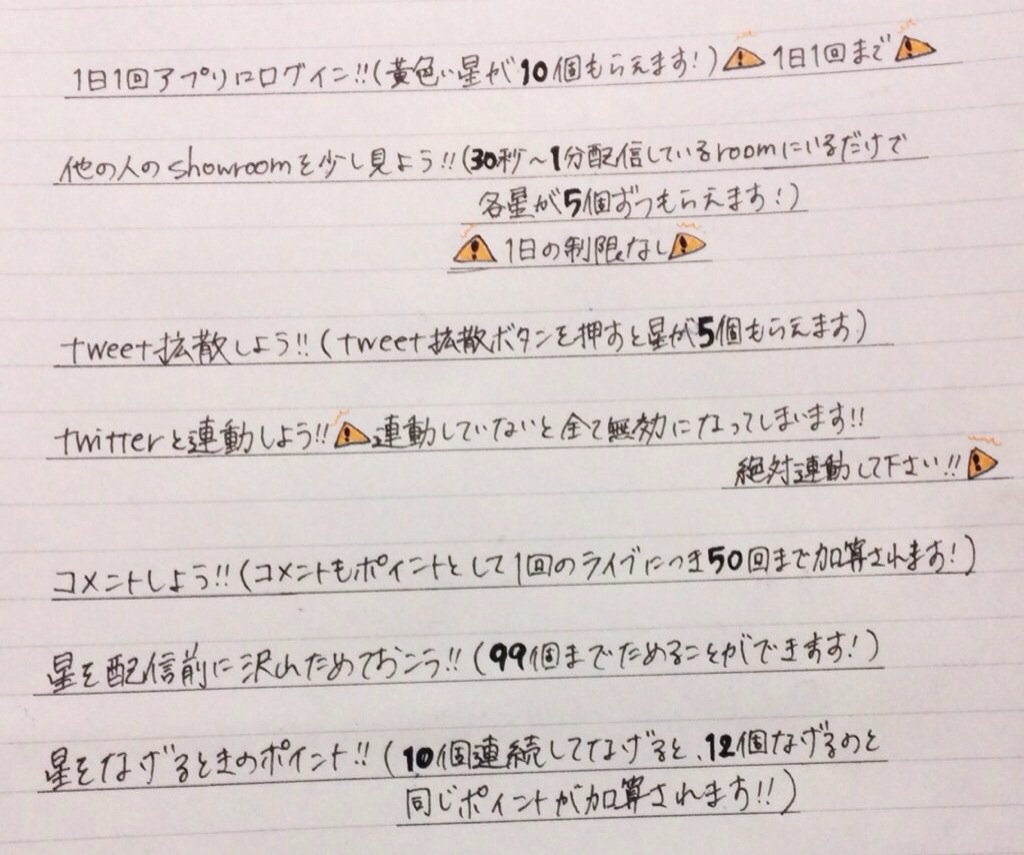 1日1回アプリにログイン!!(黄色い星が10個もらえます!)⚠1日1回まで⚠
他の人のshowroomを少し見よう!!(30秒～1分配信しているroomにいるだけで
各星が5個ずつもらえます!)
⚠1日の制限なし⚠
tweet拡散しよう!!(tweet拡散ボタンを押すと星が5個もらえます)
twitterと連動しよう!!⚠連動していないと全て無効になってしまいます!!
絶対連動して下さい!!⚠
コメントしよう!!(コメントもポイントとして1回のライブにつき50回まで加算されます!)
星を配信前に沢山ためておこう!!(99個までためることができます!)
星をなげるときのポイント!!(10個連続してなげると、12個なげるのと
同じポイントが加算されます!!)